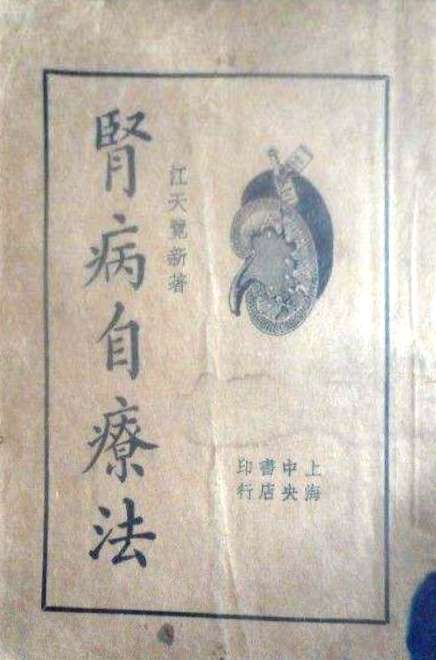 腎病自療法
江天覽新著
上海
中央
書店
印行